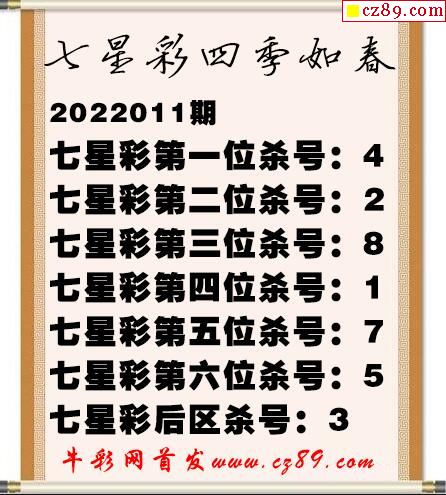 cz89.com
七星彩四季如春
2022011期
七星彩第一位杀号：4
七星彩第二位杀号：2
七星彩第三位杀号：8
七星彩第四位杀号：1
七星彩第五位杀号：7
七星彩第六位杀号：5
七星彩后区杀号：3
牛彩网首发www.cz89.com